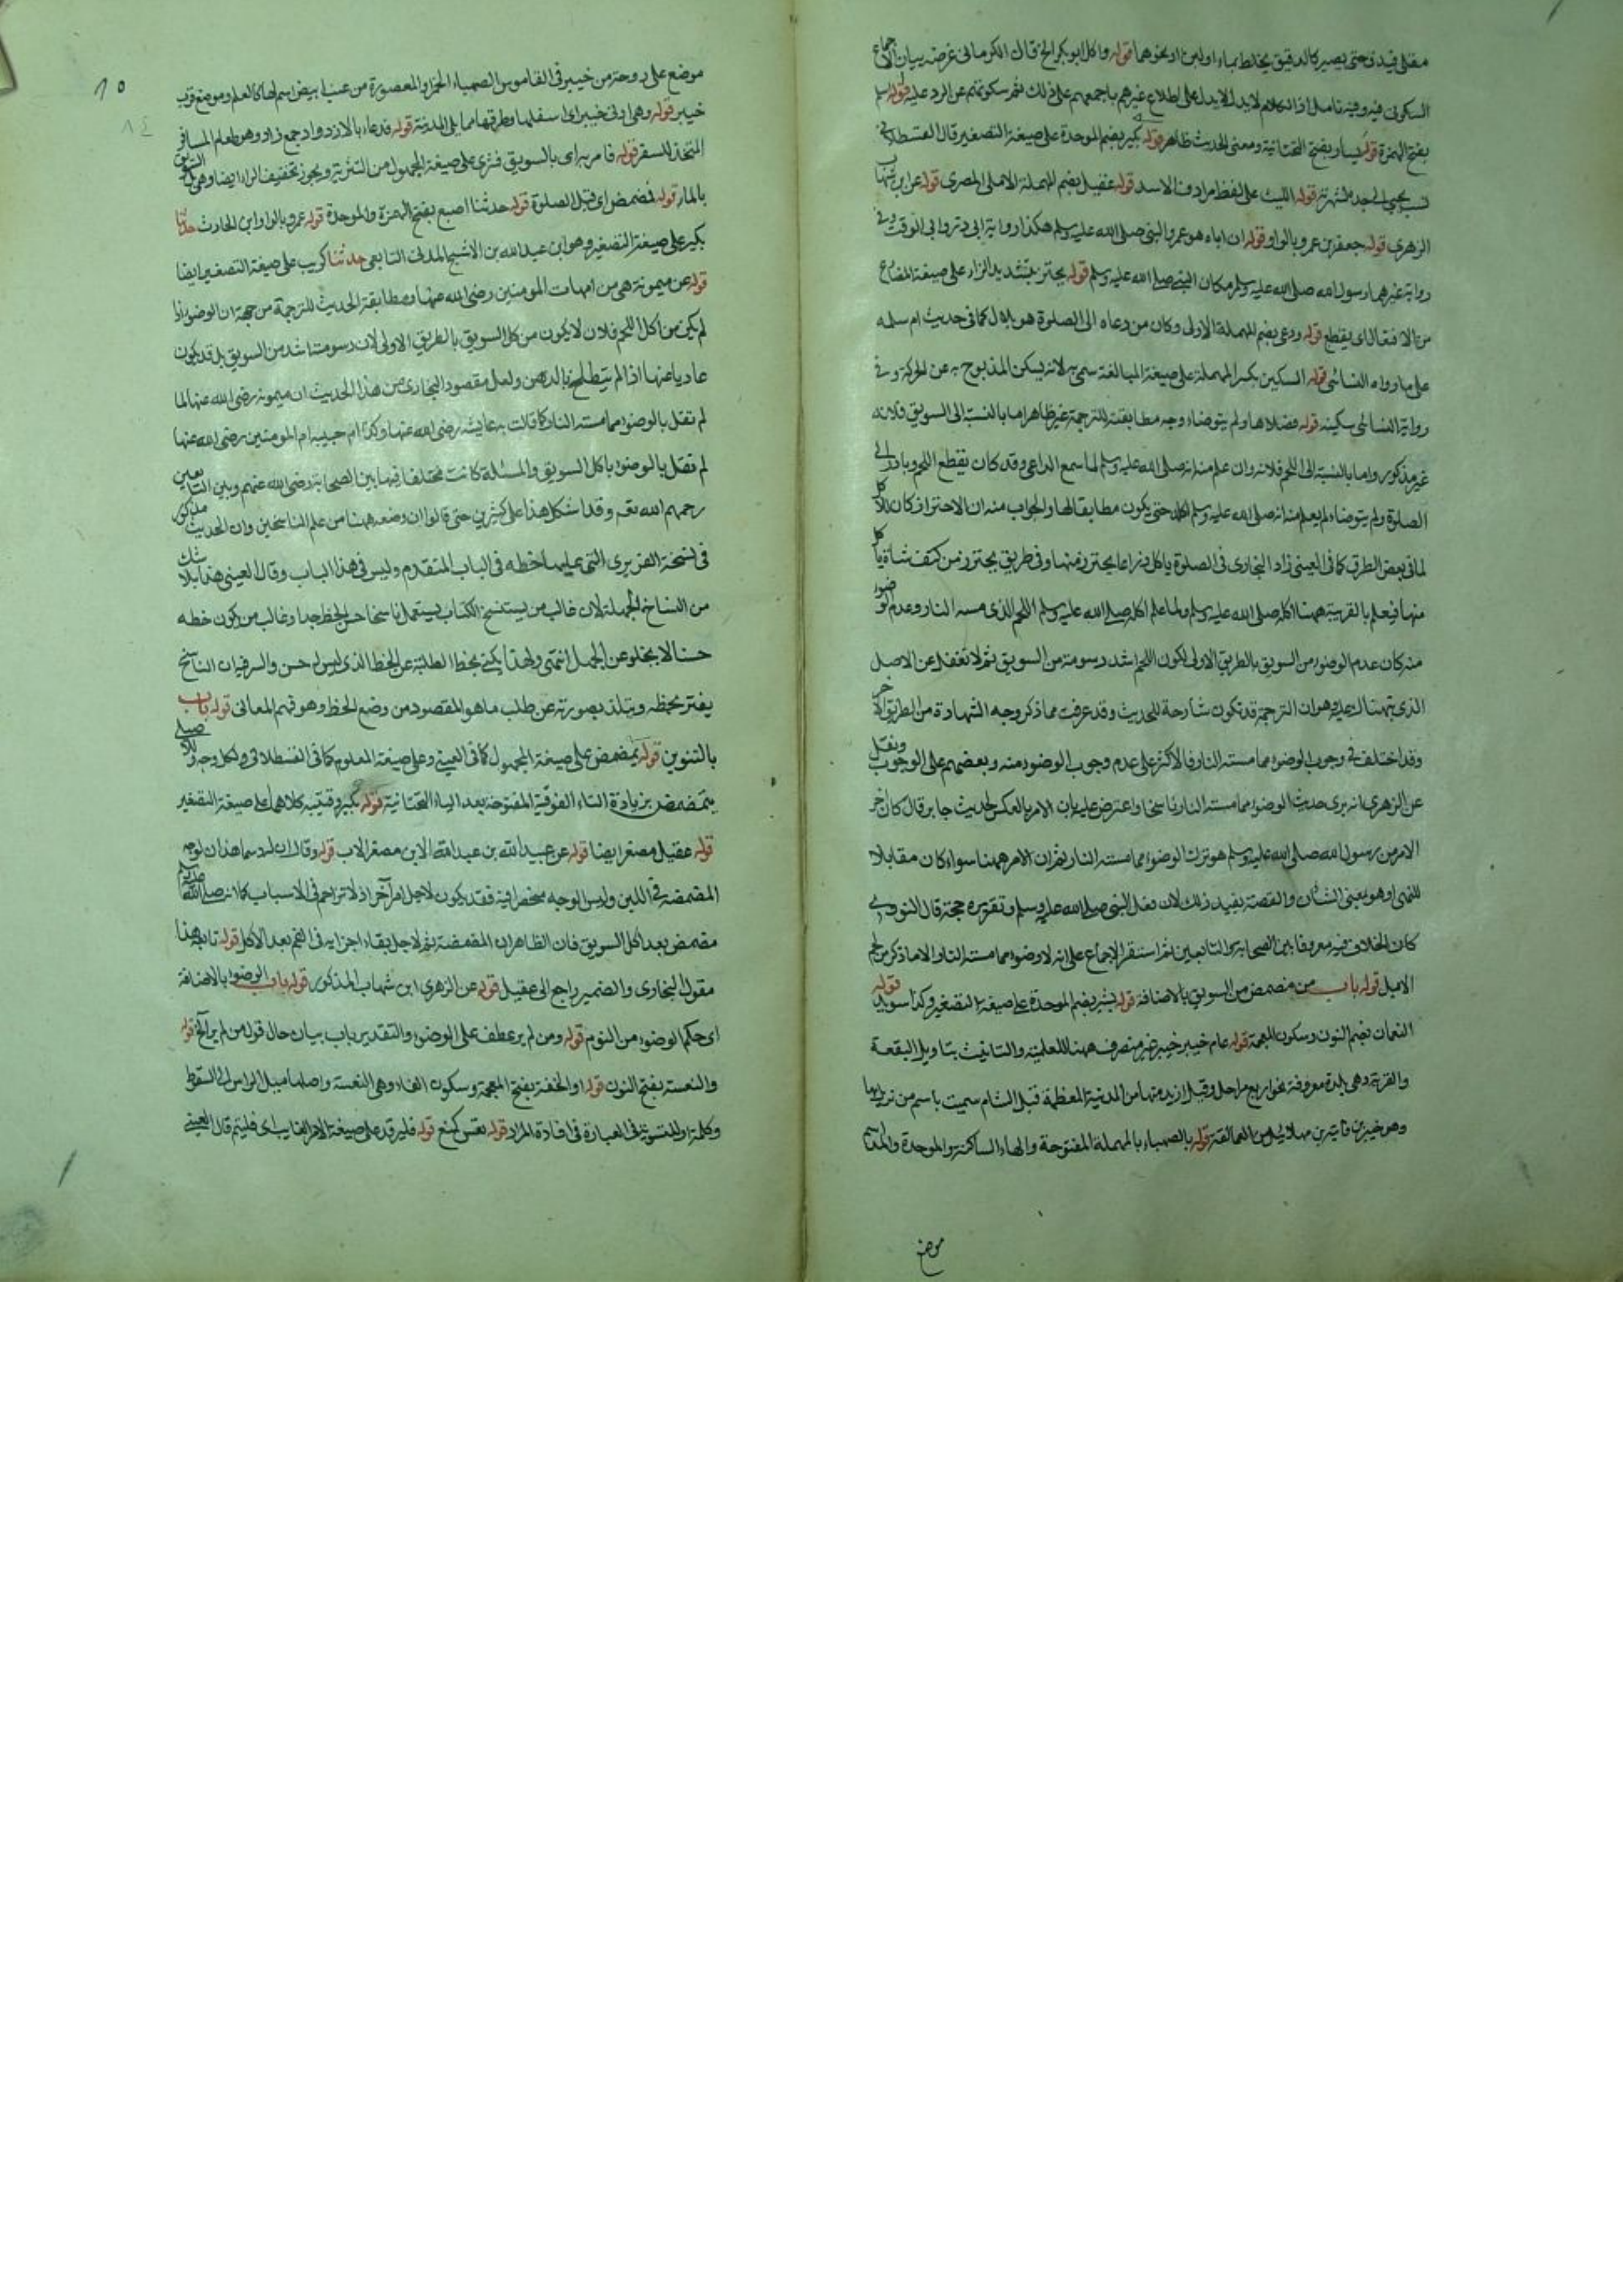 مقلى فيدق حتى يصير كالدقيق يخلط بماء او لبن او نحوهما قوله واكل ابو بكر الخ قال الكرمانى غرضه بيان الاجماع
السكوتى فيه وفيه تامل اذ الكلام لا يدل على اطلاع غيرهم باجمعهم على ذلك ثم سكوتهم عن الرد عليه قوله
بفتح الهمزة قوله يسار بفتح التحتانية ومعنى الحديث ظاهر قوله بكير بضم الموحدة على صيغة التصغير قال القسطلانى
نسب يحيى الى جده لشهرته قوله الليث على لفظ مرادف الاسد قوله عقيل بضم المهملة الايلى المصرى قوله عن ابن شهاب
الزهرى قوله جعفر بن عمرو بالواو قوله ان اباه هو عمرو النبى صلى الله عليه وسلم هكذا رواية ابى ذر وابى الوقت وفى
رواية غيرهما رسول الله صلى الله عليه وسلم مكان النبى صلى الله عليه وسلم قوله يحتز بتشديد الزاء على صيغة المضارع
من الافتعال اى يقطع قوله ودعى بضم المهملة الاولى وكان من دعاه الى الصلوة هو بلال كما فى حديث ام سلمه
على ما رواه النسائى قوله السكين بكسر المهملة على صيغة المبالغة سمى به لانه يسكن المذبوح به عن الحركة وفى
رواية النسائى سكينه قوله فصلاها ولم يتوضاء وجه مطابقته للترجمة غير ظاهر اما بالنسبة الى السويق فلانه
غير مذكور واما بالنسبة الى اللحم فلانه وان علم منه انه صلى الله عليه وسلم لما سمع الداعى وقد كان يقطع اللحم وبادر الى
الصلوة ولم يتوضاء لم يعلم منه انه صلى الله عليه وسلم اكله حتى يكون مطابقا لها والجواب منه ان الاحتزاز كان للاكل
لما فى بعض الطرق كما فى العينى زاد البخارى فى الصلوة ياكل ذراعا يحتز منها وفى طريق يحتز من كتف شاة ياكل
منها فيعلم بالقرينة ههنا اكله صلى الله عليه وسلم ولما علم اكله صلى الله عليه وسلم اللحم الذى مسه النار وعدم الوضوء
منه كان عدم الوضوء من السويق بالطريق الاولى لكون اللحم اشد دسومة من السويق ثم لا تغفل عن الاصل
الذى نبهناك عليه وهو ان الترجمة قد تكون شارحة للحديث وقد عرفت مما ذكر وجه الشهادة من الطريق الآخر
وقد اختلف فى وجوب الوضوء مما مسته النار فالاكثر على عدم وجوب الوضوء منه وبعضهم على الوجوب ونقل
عن الزهرى انه يرى حديث الوضوء مما مسته النار ناسخا واعترض عليه بان الامر بالعكس لحديث جابر قال كان آخر
الامر من رسول الله صلى الله عليه وسلم هو ترك الوضوء مما مسته النار ثم ان الامر ههنا سواء كان مقابلا
للنهى او هو بمعنى الشان والقصة يفيد ذلك لان فعل النبى صلى الله عليه وسلم وتقريره حجة قال النووى
كان الخلاف فيه معروفا بين الصحابة والتابعين ثم استقر الاجماع على انه لا وضوء مما مسته النار الا ما ذكر من لحم
الابل قوله باب من مضمض من السويق بالاضافة قوله بشير بضم الموحدة على صيغة التصغير وكذا سويد قوله
النعمان بضم النون وسكون المهملة قوله عام خيبر خيبر غير منصرف ههنا للعلمية والتانيث بتاويل البقعة
والقرية وهى بلدة معروفة نحو اربع مراحل وقيل ازيد منها من المدينة المعظمة قبل الشام سميت باسم من نزل بها
وهو خيبر بن قانية بن مهلاييل من العمالقة قوله بالصهباء بالمهملة المفتوحة والهاء الساكنة والموحدة والمد
موضع
١٥
٨٤
موضع على روحة من خيبر فى القاموس الصهباء الخمر والمعصورة من عنب ابيض اسم لها كالعلم وموضع قرب
خيبر قوله وهى ادنى خيبر اى اسفلها وطرفها مما يلى المدينة قوله فدعاء بالازواد جمع زاد وهو طعام المسافر
المتخذ للسفر قوله فامر به اى بالسويق فثرى على صيغة المجهول من التثرية ويجوز تخفيف الراء ايضا وهى بل السويق
بالماء قوله فمضمض اى قبل الصلوة قوله حدثنا اصبغ بفتح الهمزة والموحدة قوله عمرو بالواو ابن الحارث حدثنا
بكير على صيغة التصغير وهو ابن عبد الله بن الاشج المدنى التابعى حدثنا كريب على صيغة التصغير ايضا
قوله عن ميمونة هى من امهات المومنين رضى الله عنها ومطابقة الحديث للترجمة من جهة ان الوضوء اذا
لم يكن من اكل اللحم فلان لا يكون من اكل السويق بالطريق الاولى لان دسومته اشد من السويق بل قد يكون
عاديا عنها اذا لم يتطلخ بالدهن ولعل مقصود البخارى من هذا الحديث ان ميمونة رضى الله عنها لما
لم تقل بالوضوء مما مسته النار كما قالت به عايشه رضى الله عنها وكذا ام حبيبه ام المومنين رضى الله عنها
لم تقل بالوضوء باكل السويق والمسئلة كانت مختلفا فيها بين الصحابة رضى الله عنهم وبين التابعين
رحمهم الله نعم وقد اشكل هذا على كثيرين حتى قالوا ان وضعه ههنا من علم الناسخين وان الحديث مذكور
فى نسخة الفربرى التى عليها خطه فى الباب المتقدم وليس فى هذا الباب وقال العينى هذا بلا شك
من النساخ الجهلة لان غالب من يستنسخ الكتاب يستعمل ناسخا حسن الخط جدا وغالب من يكون خطه
حسنا لا يخلو عن الجهل انتهى ولهذا يكتفى بخط الطلبة عن الخط الذى ليس له حسن والسر فيه ان الناسخ
يغتر بخطه ويتلذذ بصورته عن طلب ما هو المقصود من وضع الخط وهو فهم المعانى قوله باب
بالتنوين قوله يمضمض على صيغة المجهول كما فى العينى وعلى صيغة المعلوم كما فى القسطلانى ولكل وجه وللاصيلى
يتمضمض بزيادة التاء الفوقية المفتوحة بعد الياء التحتانية قوله بكير وقتيبه كلاهما على صيغة التصغير
قوله عقيل مصغر ايضا قوله عن عبيد الله بن عبد الله الابن مصغر الاب قوله وقال ان له دسما هذا بيان لوجه
المضمضة فى اللبن وليس الوجه منحصرا فيه فقد يكون لاجل امر آخر اذ لا تزاحم فى الاسباب كما انه صلى الله عليه وسلم
مضمض بعد اكل السويق فان الظاهر ان المضمضة ثم لاجل بقاء اجزايه فى الفم بعد الاكل قوله تابعه هذا
مقول البخارى والضمير راجع الى عقيل قوله عن الزهرى ابن شهاب المذكور قوله باب الوضوء بالاضافة
اى حكم الوضوء من النوم قوله ومن لم ير عطف على الوضوء والتقدير باب بيان حال قول من لم ير الخ قوله
والنعسة بفتح النون قوله او الخفقة بفتح المعجمة وسكون الفاء وهى النعسة واصلها ميل الراس الى السقوط
وكلمة او للتسوية فى العبارة فى افادة المراد قوله نعس كمنع قوله فليرقد على صيغة الامر الغايب اى فلينم قال العينى